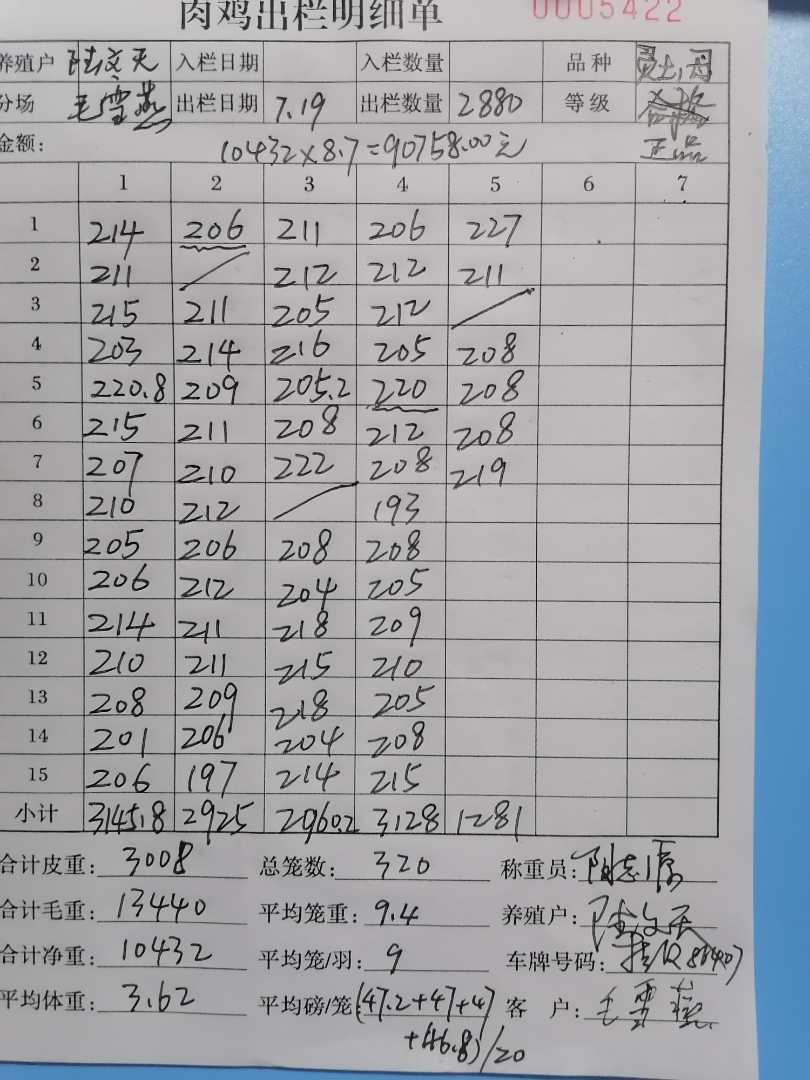 肉鸡出栏明细单 0005422
养殖户 陆文天 入栏日期 入栏数量 品种
分场 毛雪燕 出栏日期 7.19 出栏数量 2880 等级
金额: 10432×8.7=90758.00元 正品
1 2 3 4 5 6 7
1 214 206 211 206 227
2 211 / 212 212 211
3 215 211 205 212 /
4 203 214 216 205 208
5 220.8 209 205.2 220 208
6 215 211 208 212 208
7 207 210 222 208 219
8 210 212 / 193
9 205 206 208 208
10 206 212 204 205
11 214 211 218 209
12 210 211 215 210
13 208 209 218 205
14 201 206 204 208
15 206 197 214 215
小计 3145.8 2925 2960.2 3128 1281
合计皮重: 3008 总笼数: 320 称重员:
合计毛重: 13440 平均笼重: 9.4 养殖户: 陆文天
合计净重: 10432 平均笼/羽: 9 车牌号码:
平均体重: 3.62 平均磅/笼: (47.2+47+47 客 户: 毛雪燕
+46.8)/20